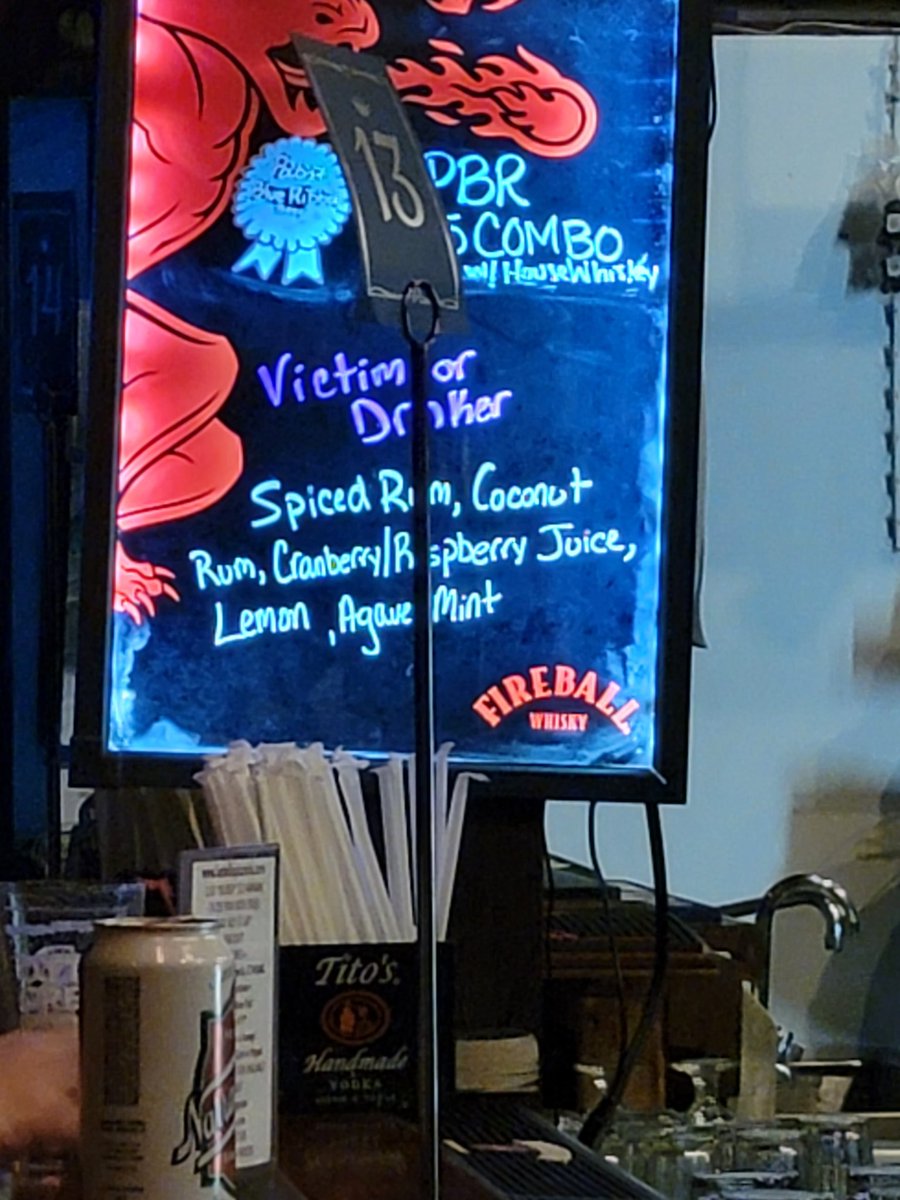 13
Pabst
Blue Ribbon
PBR
5 COMBO
w/ House Whiskey
Victim or
Drinker
Spiced Rum, Coconut
Rum, Cranberry/Raspberry Juice,
Lemon, Agave Mint
FIREBALL
WHISKY
Tito's
Handmade
VODKA